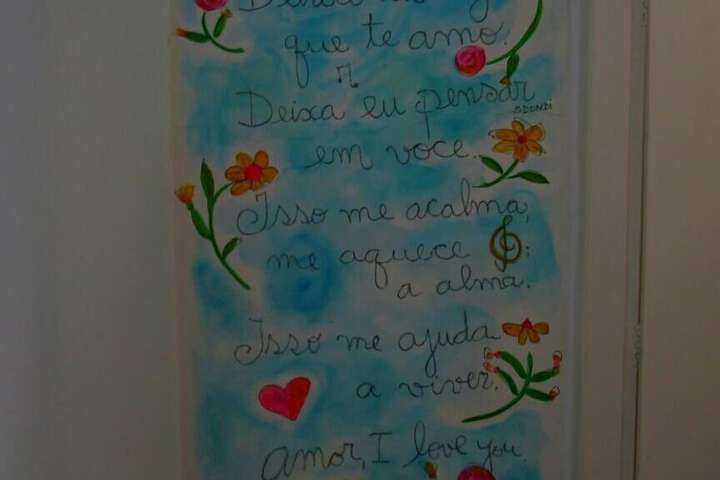 que te amo.
Deixa eu pensar
em você.
Isso me acalma,
me aquece
a alma.
Isso me ajuda
a viver.
Amor, I love you.